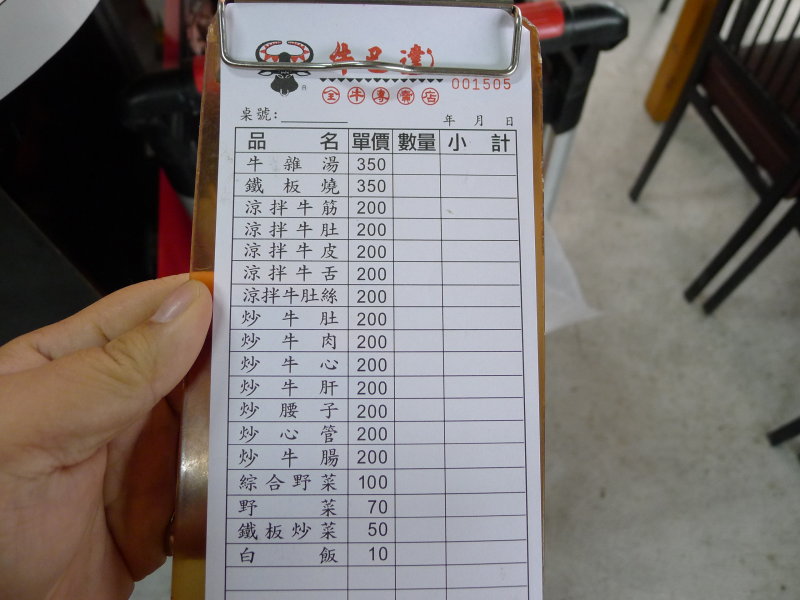 牛巴達
全牛專賣店
001505
桌號:
年 月 日
品名 單價 數量 小計
牛雜湯 350
鐵板燒 350
涼拌牛筋 200
涼拌牛肚 200
涼拌牛皮 200
涼拌牛舌 200
涼拌牛肚絲 200
炒牛肚 200
炒牛肉 200
炒牛心 200
炒牛肝 200
炒腰子 200
炒心管 200
炒牛腸 200
綜合野菜 100
野菜 70
鐵板炒菜 50
白飯 10